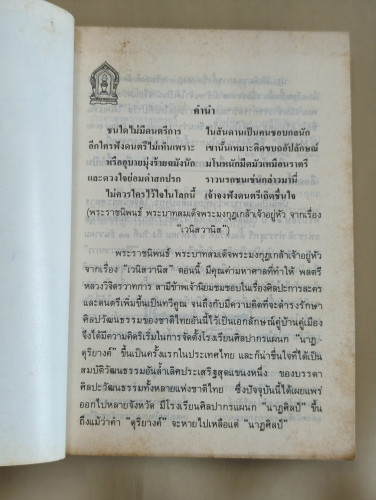 คำนำ
ชนใดไม่มีดนตรีการ ในสันดานเป็นคนชอบกลนัก
อีกใครฟังดนตรีไม่เห็นเพราะ เขานั้นเหมาะคิดขบถอัปลักษณ์
หรืออุบายมุ่งร้ายฉมังนัก มโนหนักมืดมัวเหมือนราตรี
และดวงใจย่อมดำสกปรก ราวนรกชนเช่นกล่าวมานี่
ไม่ควรใครไว้ใจในโลกนี้ เจ้าจงฟังดนตรีเถิดชื่นใจ
(พระราชนิพนธ์ พระบาทสมเด็จพระมงกุฎเกล้าเจ้าอยู่หัว จากเรื่อง
"เวนิสวานิส")
พระราชนิพนธ์ พระบาทสมเด็จพระมงกุฎเกล้าเจ้าอยู่หัว
จากเรื่อง "เวนิสวานิส" ตอนนี้ มีคุณค่ามหาศาลที่ทำให้ พลตรี
หลวงวิจิตรวาทการ สามีข้าพเจ้านิยมชมชอบในเรื่องศิลปะการละคร
และดนตรีเพิ่มขึ้นเป็นทวีคูณ จนถึงกับมีความคิดที่จะดำรงรักษา
ศิลปวัฒนธรรมของชาติไทยอันนี้ไว้เป็นเอกลักษณ์คู่บ้านคู่เมือง
จึงได้มีความคิดริเริ่มในการจัดตั้งโรงเรียนศิลปากรแผนก "นาฏ
ดุริยางค์" ขึ้นเป็นครั้งแรกในประเทศไทย และก็น่าชื่นใจที่ได้เป็น
สมบัติวัฒนธรรมอันล้ำเลิศประเสริฐสุดแขนงหนึ่ง ของบรรดา
ศิลปะวัฒนธรรมทั้งหลายแห่งชาติไทย ซึ่งปัจจุบันนี้ได้เผยแพร่
ออกไปหลายจังหวัด มีโรงเรียนศิลปากรแผนก "นาฏศิลป์" ขึ้น
ถึงแม้ว่าคำ "ดุริยางค์" จะหายไปเหลือแต่ "นาฏศิลป์"